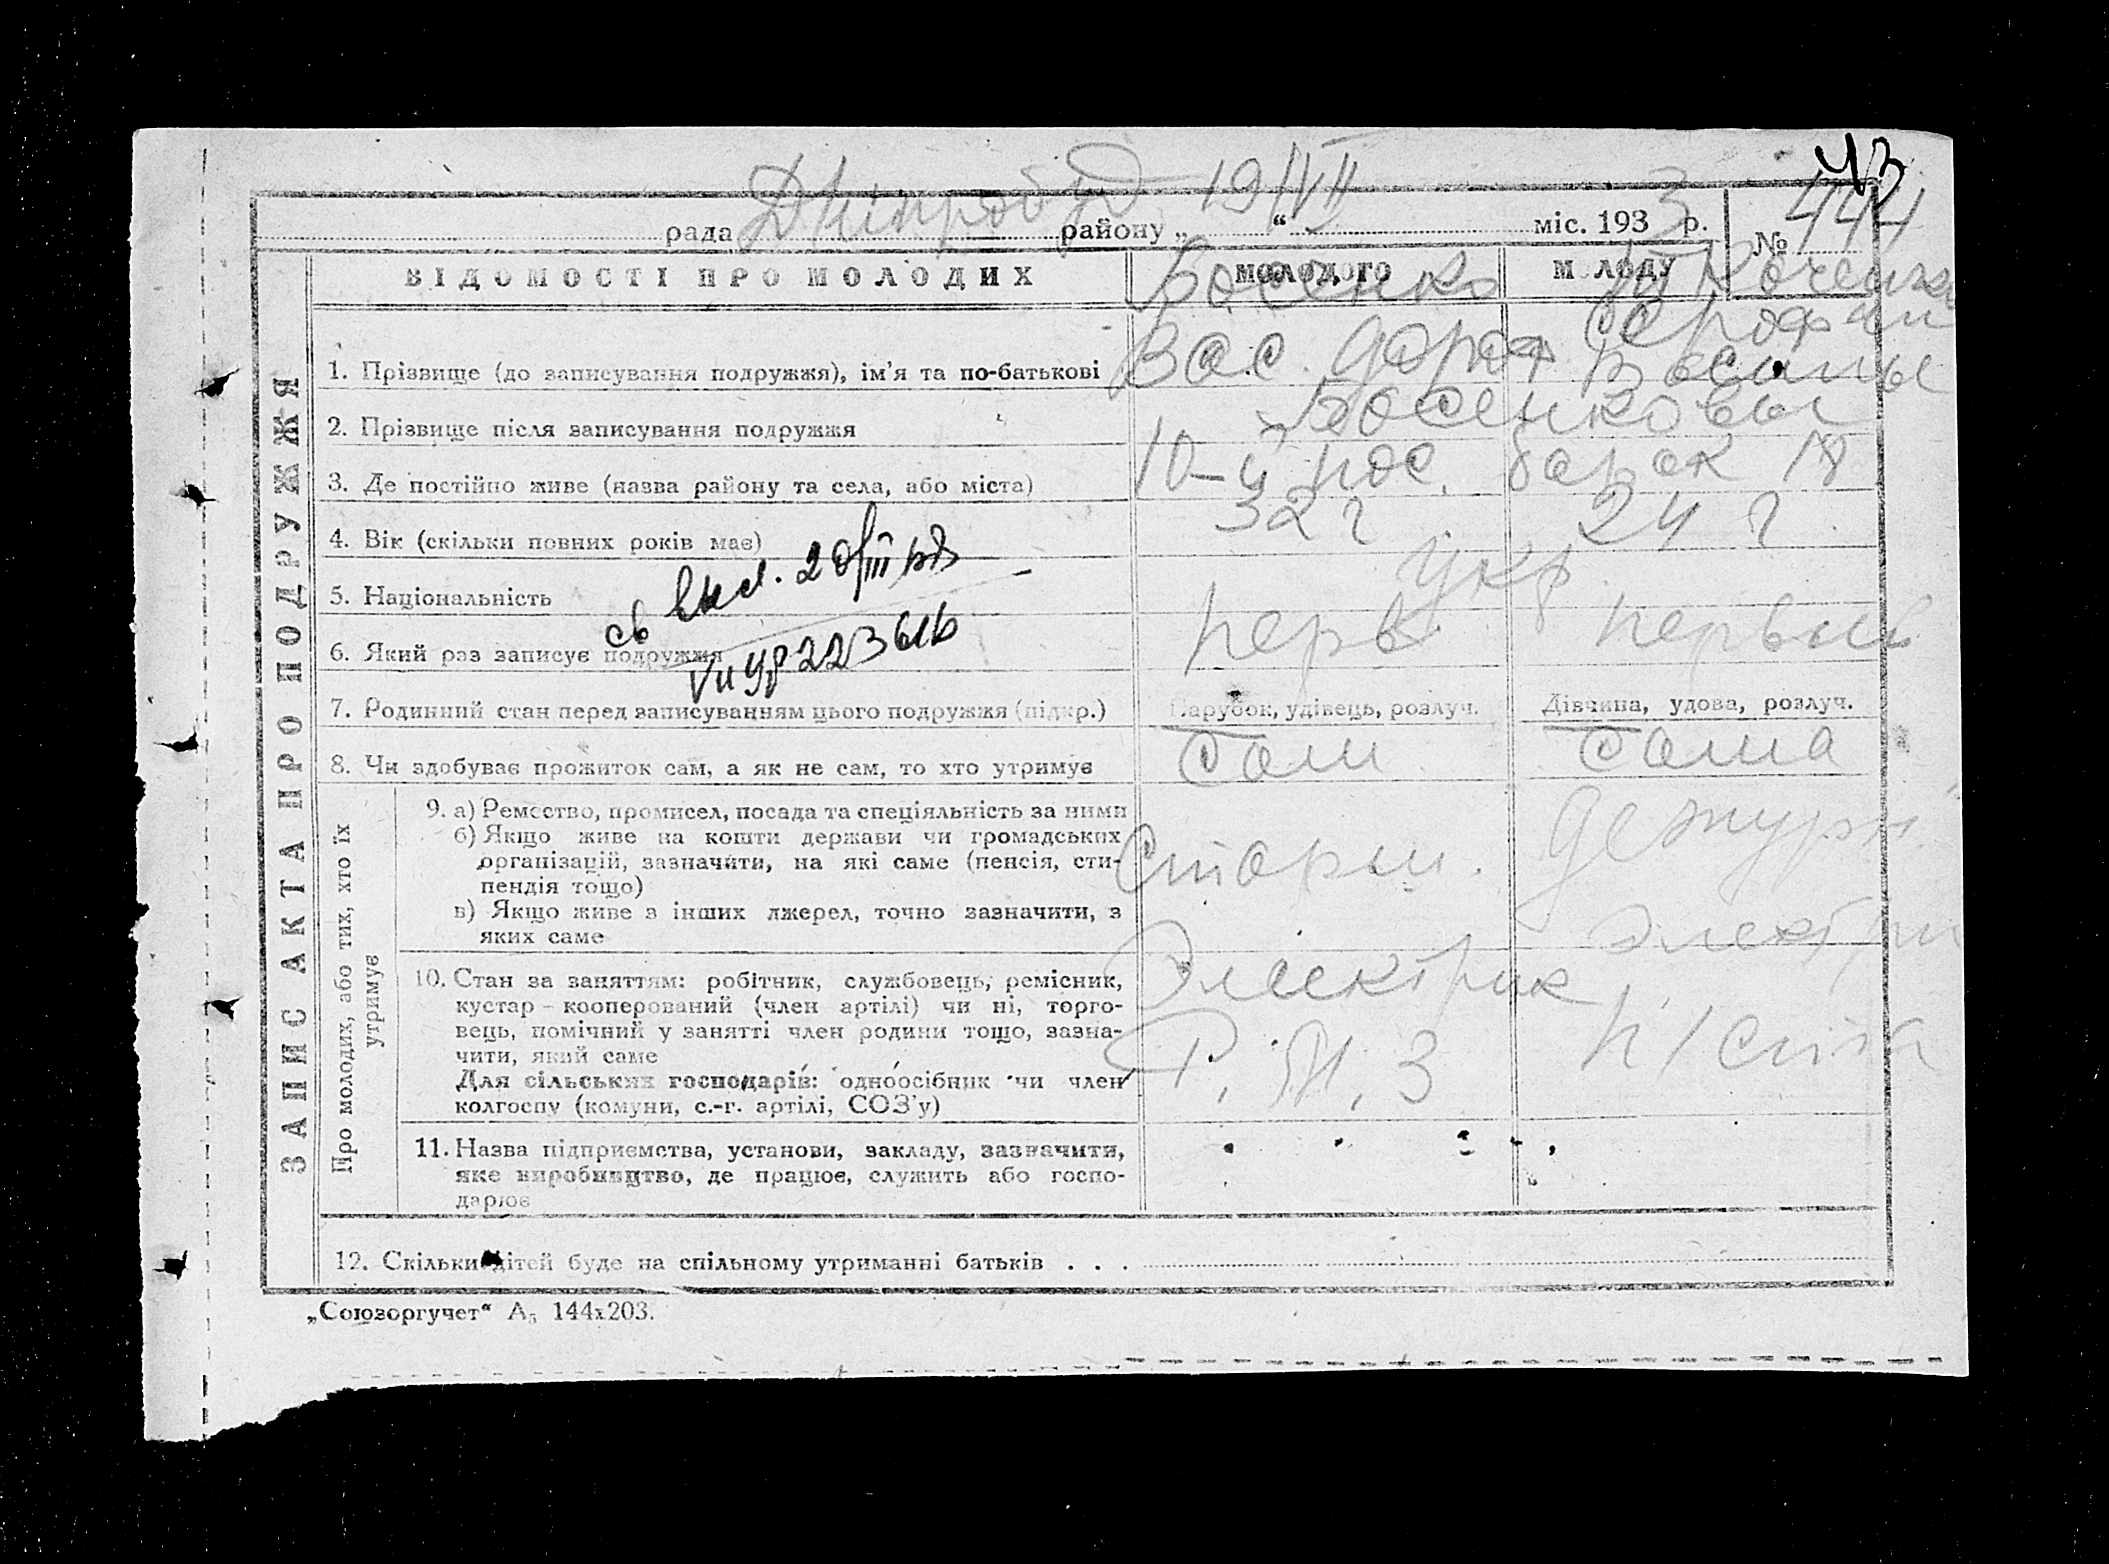 43
рада Дніпробуд району „ 19/VII “ міс. 1933 р.
№ 444
ЗАПИС АКТА ПРО ПОДРУЖЖЯ
ВІДОМОСТІ ПРО МОЛОДИХ МОЛОДОГО МОЛОДУ
Босенко
1. Прізвище (до записування подружжя), ім’я та по-батькові Вас. Дороф
2. Прізвище після записування подружжя Босенковы
3. Де постійно живе (назва району та села, або міста) 10-й пос. барак 18
4. Вік (скільки повних років має) 32 г 24 г
5. Національність Укр.
6. Який раз записує подружжя перв первый
7. Родинний стан перед записуванням цього подружжя (підкр.) Парубок, удівець, розлуч. Дівчина, удова, розлуч.
8. Чи здобуває прожиток сам, а як не сам, то хто утримує сам сама
Про молодих, або тих, хто їх утримує
9. а) Ремество, промисел, посада та спеціяльність за ними
б) Якщо живе на кошти держави чи громадських
організацій, зазначити, на які саме (пенсія, сти-
пендія тощо)
в) Якщо живе з інших джерел, точно зазначити, з
яких саме
Старш. дежурн
Электрик электри
10. Стан за заняттям: робітник, службовець, ремісник,
кустар - кооперований (член артілі) чи ні, торго-
вець, помічний у занятті член родини тощо, зазна-
чити, який саме
Для сільських господарів: одноосібник чи член
колгоспу (комуни, с.-г. артілі, СОЗ’у)
11. Назва підприємства, установи, закладу, зазначити,
яке виробництво, де працює, служить або госпо-
дарює
12. Скільки дітей буде на спільному утриманні батьків . . .
„Союзоргучет“ А5 144х203.